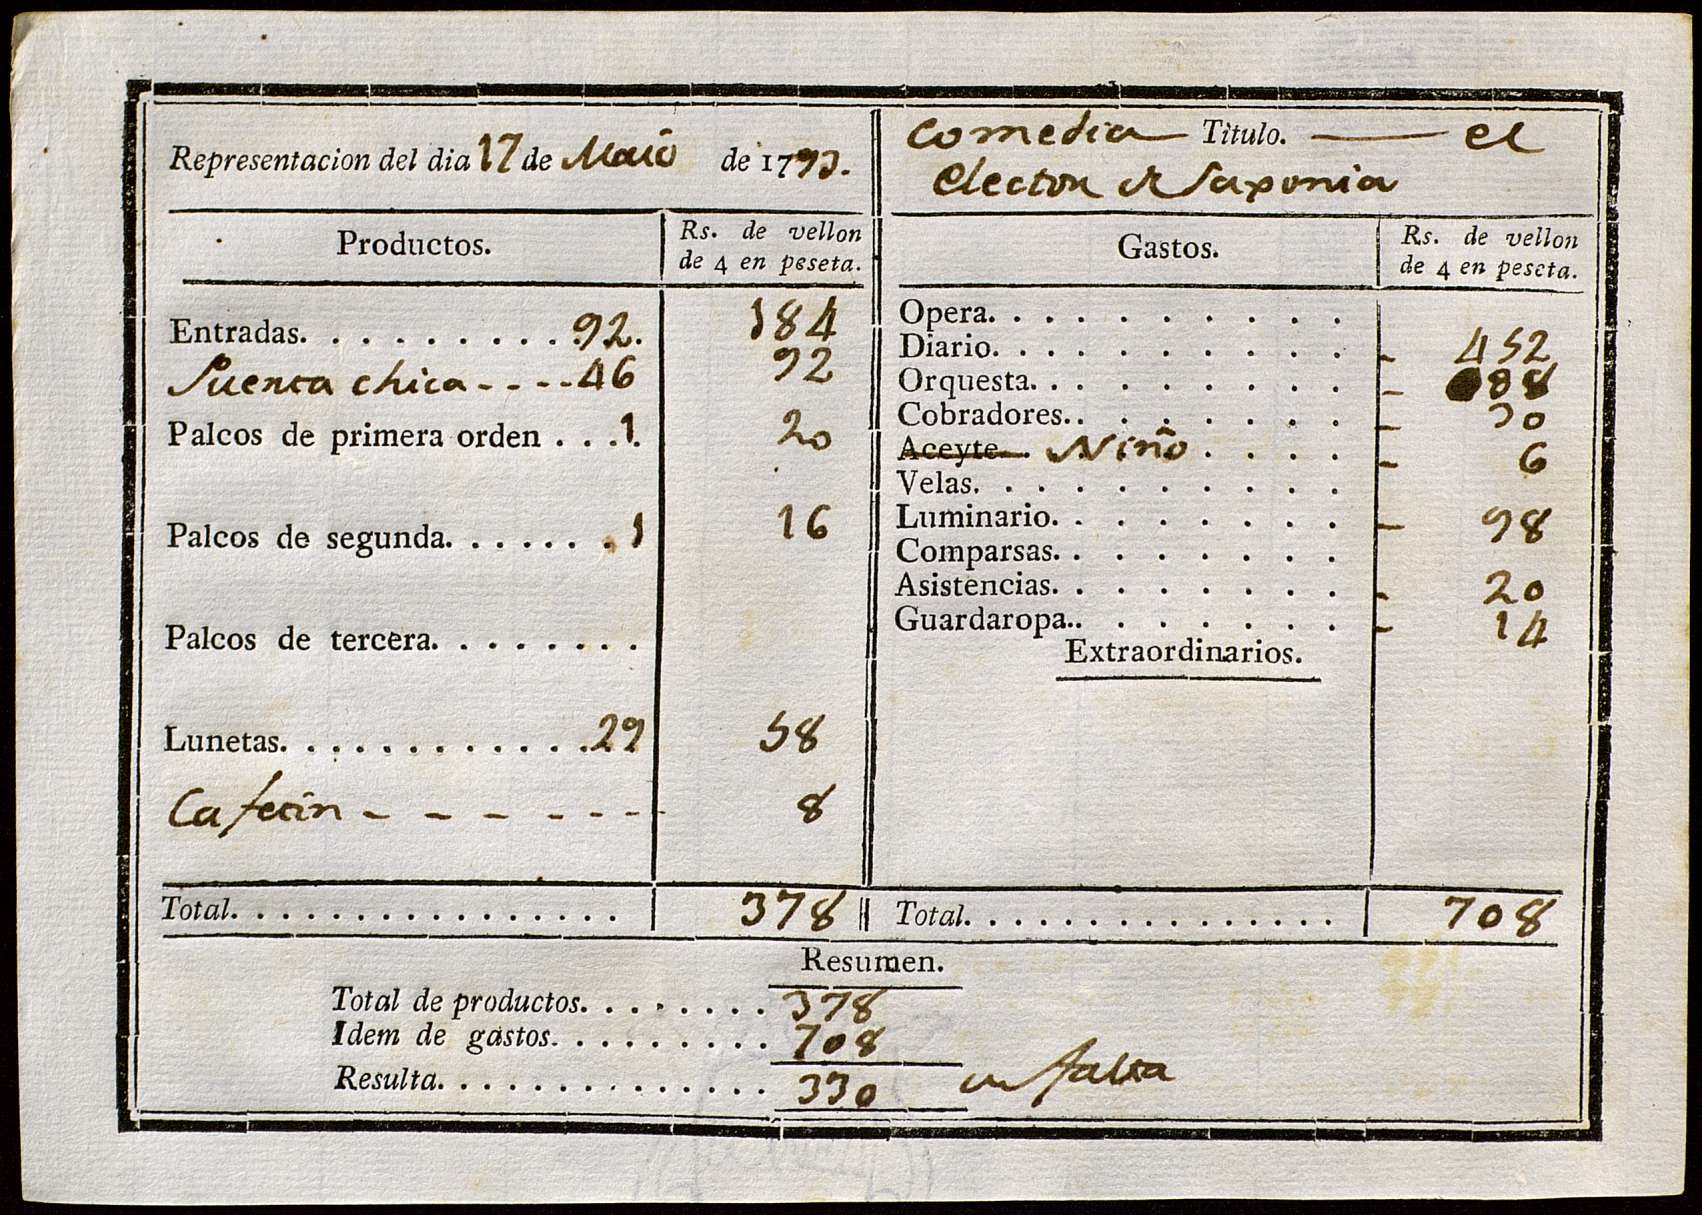 Representacion del dia 17 de Maio de 1793.
Comedia Titulo. — el
Elector de Saxonia
Productos. Rs. de vellon
de 4 en peseta.
Entradas. . . . . . . . . . 92. 184
Puerta chica - - - - 46 92
Palcos de primera orden . . . 1. 20
Palcos de segunda. . . . . . . 1 16
Palcos de tercera. . . . . . . .
Lunetas. . . . . . . . . . . . . 29 58
Cafetin - - - - - - - - 8
Total. . . . . . . . . . . . . . . . 378
Gastos. Rs. de vellon
de 4 en peseta.
Opera. . . . . . . . . . .
Diario. . . . . . . . . . . - 452
Orquesta. . . . . . . . . - 88
Cobradores. . . . . . . . - 30
Aceyte. Niño . . . . - 6
Velas. . . . . . . . . .
Luminario. . . . . . . . - 98
Comparsas. . . . . . . .
Asistencias. . . . . . . . - 20
Guardaropa. . . . . . . . - 14
Extraordinarios.
Total. . . . . . . . . . . . . . . . 708
Resumen.
Total de productos. . . . . . . . 378
Idem de gastos. . . . . . . . . . 708
Resulta. . . . . . . . . . . . . . . 330 en falta